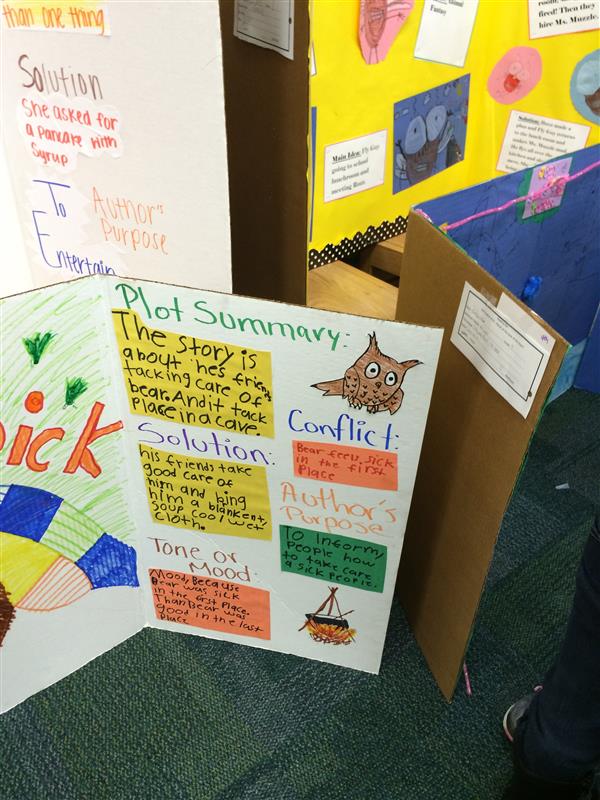 than one thing
Solution
She asked for
a pancake with
Syrup
To
Entertain
Author's
Purpose
Fantasy
room,
fired! Then they
hire Ms. Muzzle.
Main Idea: Fly Guy
going to school
lunchroom and
meeting Roz.
Solution:
plan and Fly Guy returns
to the lunchroom and
makes Ms. Muzzle mad.
sick
Plot Summary:
The story is
about hes friends
tacking care of
bear. And it tack
place in a cave.
Solution:
his friends take
good care of
him and bing
him a blankent,
soup cool wet
cloth.
Tone or
Mood:
Mood, Because
Bear was sick
in the first Place.
Than Bear was
good in the last
Place
Conflict:
Bear feels sick
in the first
Place
Author's
Purpose
To Inform,
People how
to take care
a sick people.